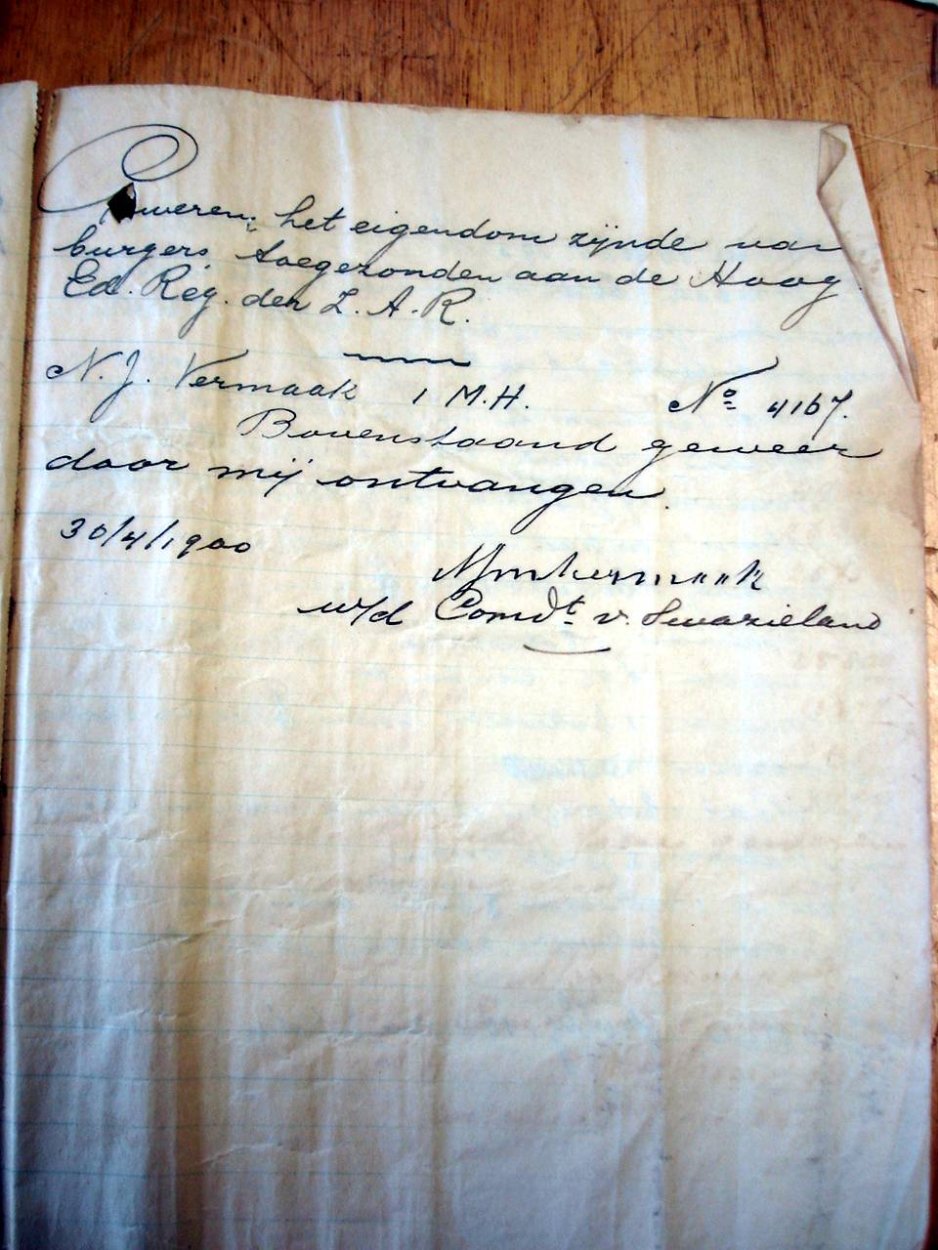 Geweren, het eigendom zijnde van
burgers, toegezonden aan de Hoog
Ed. Reg. der Z. A. R.
N. J. Vermaak 1 M.H. No 4167.
Bovenstaand geweer
door mij ontvangen.
30/4/1900
w/d Comdt v. Swazieland